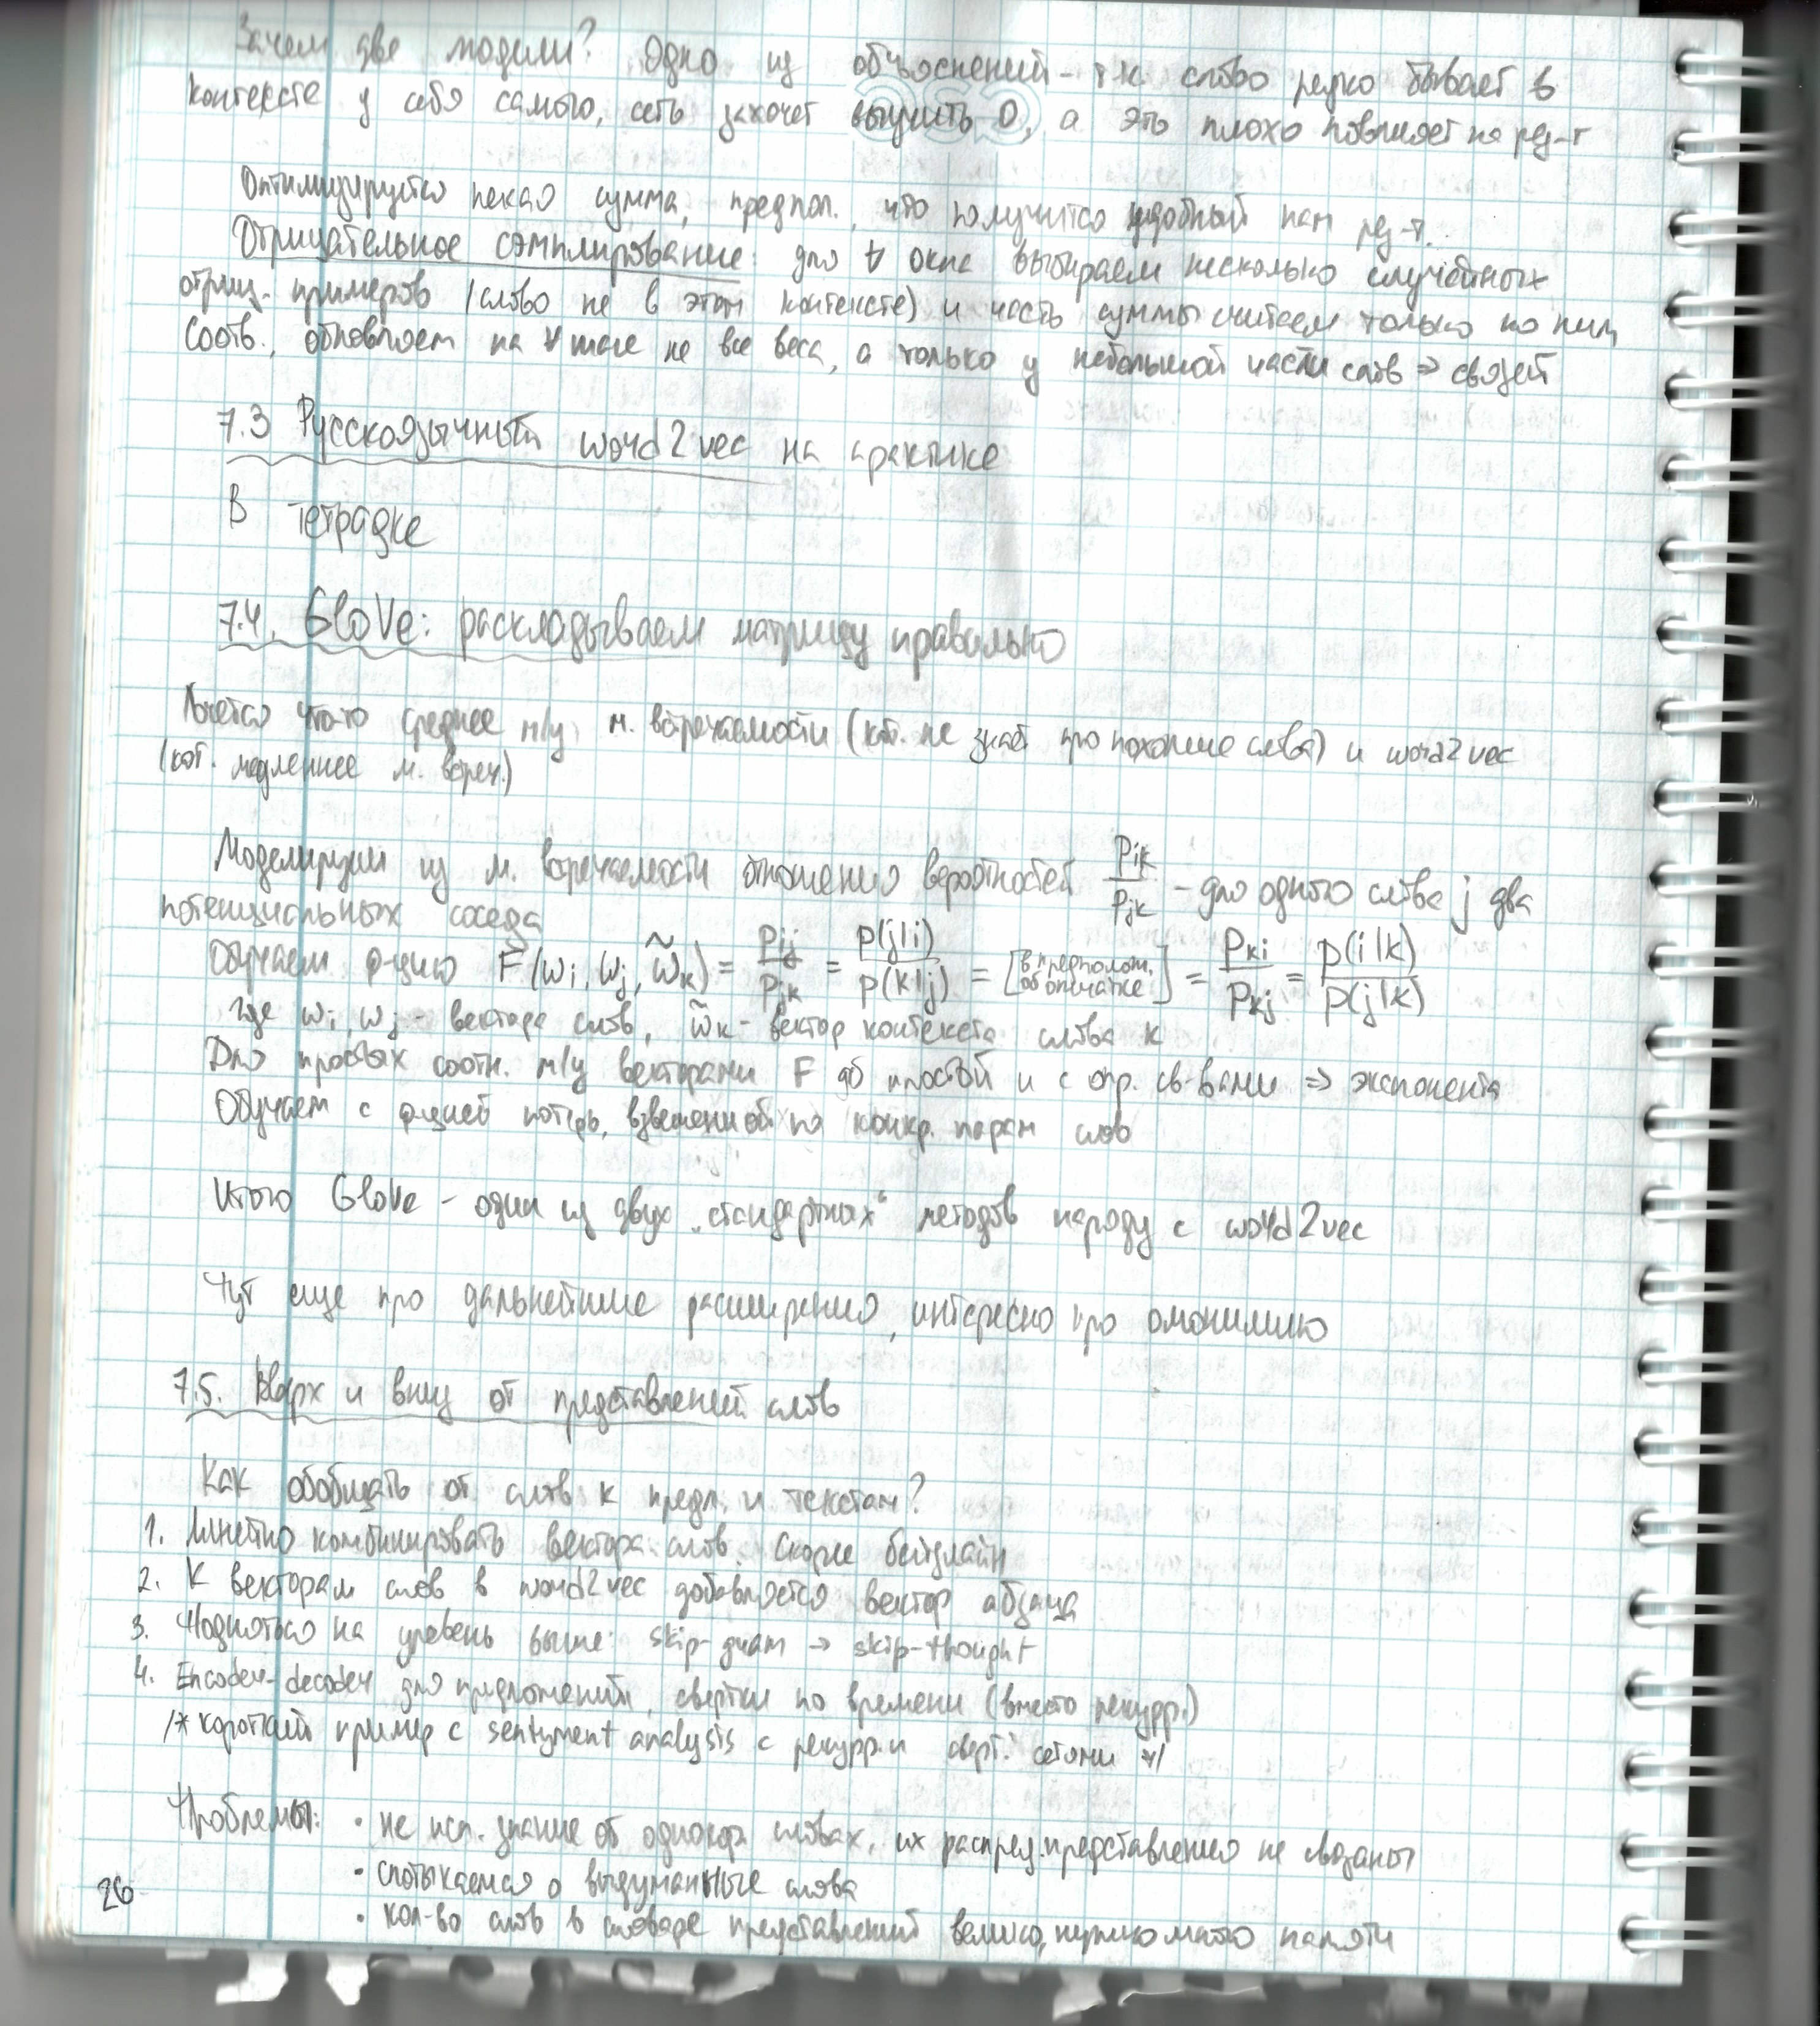 Зачем две модели? Одно из объяснений - т.к слово редко бывает в
контексте у себя самого, сеть захочет выучить 0, а это плохо повлияет на рез-т
Оптимизируется некая сумма, предпол., что получится удобный нам рез-т.
Отрицательное сэмплирование: для ∀ окна выбираем несколько случайных
отриц. примеров (слово не в этом контексте) и часть суммы считаем только по ним,
Соотв., обновляем на ∀ шаге не все веса, а только у небольшой части слов ⇒ связей
7.3 Русскоязычный word2vec на практике
В тетрадке
7.4. GloVe: раскладываем матрицу правильно
Хочется что-то среднее м/у м. встречаемости (кот. не знает про похожие слова) и word2vec
(кот. медленнее м. встреч.)
Моделируем из м. встречаемости отношения вероятностей Pik/Pjk - для одного слова j два
потенциальных соседа
Обучаем ф-цию F(wi, wj, w̃k) = Pij/Pjk = p(j|i)/p(k|j) = [в предполож. об опечатке] = Pki/Pkj = p(i|k)/p(j|k)
где wi, wj - вектора слов, w̃k - вектор контекста слова k
Для простых соотн. м/у векторами F дб простой и с опр. св-вами ⇒ экспонента
Обучаем с ф-цией потерь, взвешенной по конкр. парам слов
Итого GloVe - один из двух „стандартных“ методов наряду с word2vec
Тут еще про дальнейшие расширения, интересно про омонимию
7.5. Вверх и вниз от представлений слов
Как обобщать от слов к предл. и текстам?
1. Линейно комбинировать вектора слов. Скорее бейзлайн
2. К векторам слов в word2vec добавляется вектор абзаца
3. Подняться на уровень выше: skip-gram → skip-thought
4. Encoder-decoder для предложений, свертки по времени (вместо рекурр.)
/* короткий пример с sentyment analysis с рекурр. и сверт. сетями */
Проблемы: • не исп. знание об однокор словах, их распред. представления не связаны
• спотыкаемся о выдуманные слова
• кол-во слов в словаре представлений велико, нужно много памяти
26